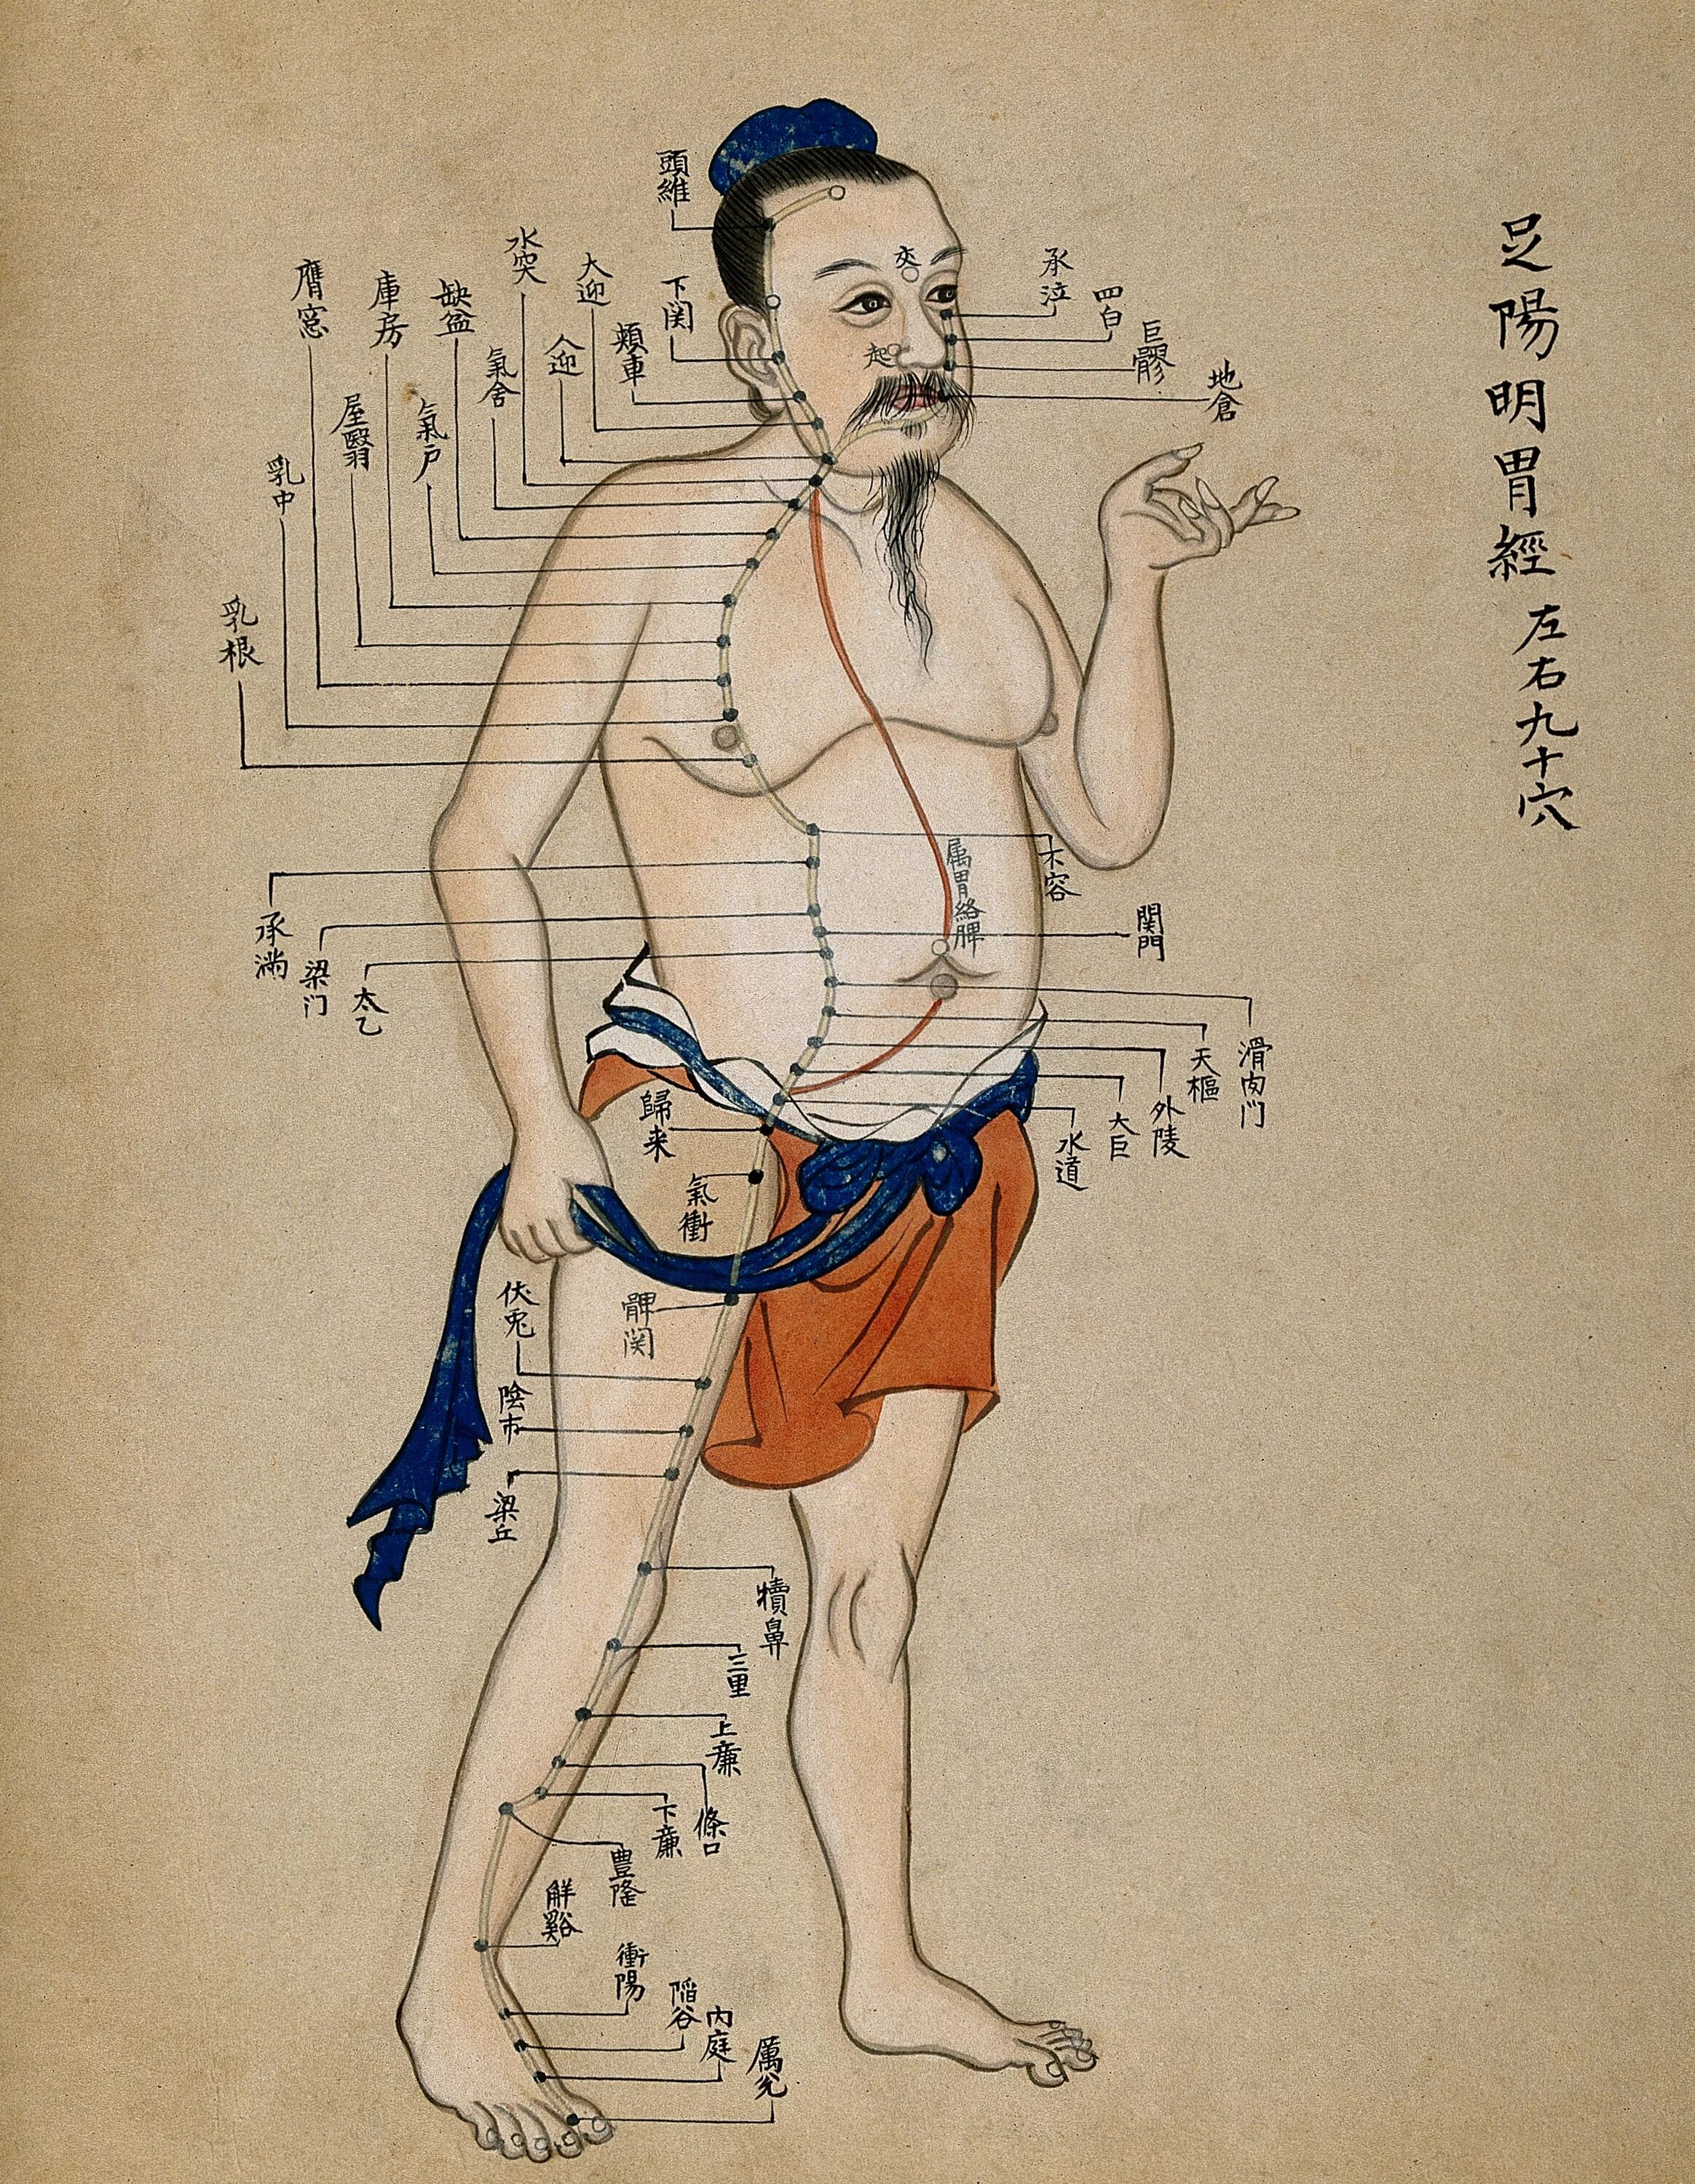 足陽明胃經 左右九十穴
頭維
下関
頬車
大迎
人迎
水突
氣舎
缺盆
氣戸
庫房
屋翳
膺窓
乳中
乳根
承泣
四白
巨髎
地倉
起
不容
属胃絡脾
承満
梁门
関門
太乙
滑肉门
天樞
外陵
大巨
水道
歸来
氣衝
髀関
伏兎
陰市
梁丘
犢鼻
三里
上廉
條口
下廉
豊隆
解谿
衝陽
陥谷
内庭
厲兌